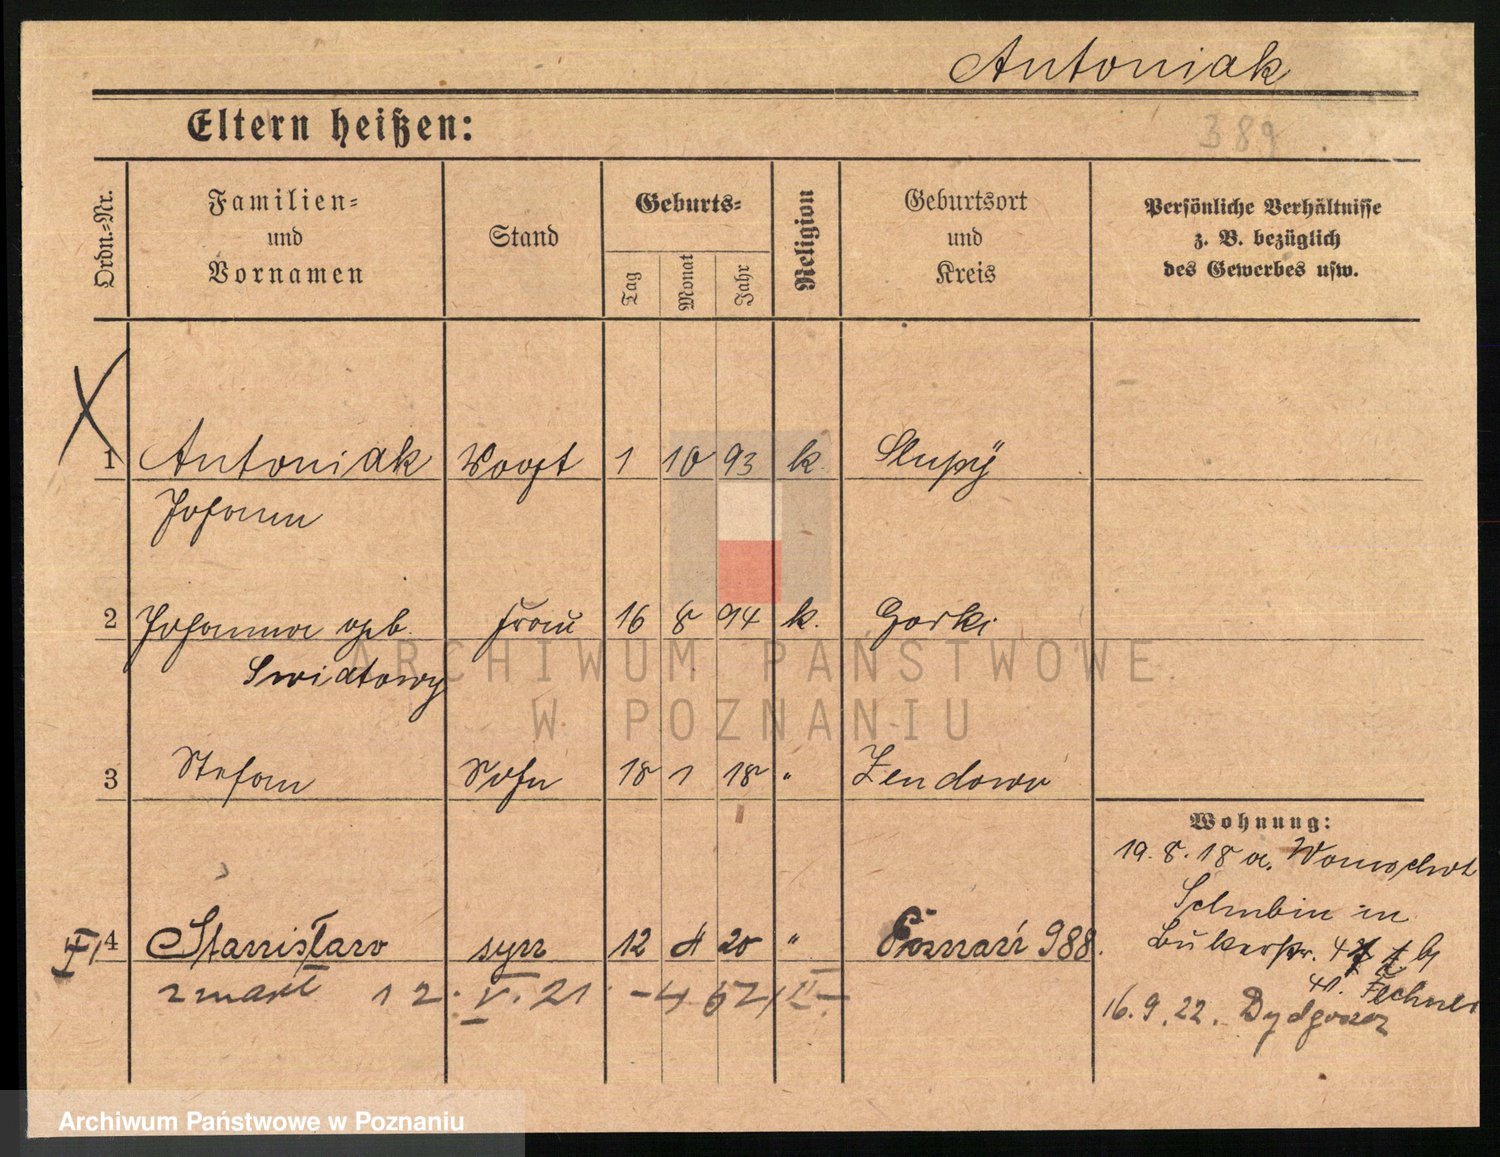 Antoniak
Eltern heißen:
389
Ordn.-Nr.
Familien-
und
Vornamen
Stand
Geburts-
Tag
Monat
Jahr
Religion
Geburtsort
und
Kreis
Persönliche Verhältnisse
z. B. bezüglich
des Gewerbes usw.
1 Antoniak Voogt 1 10 93 k. Slupÿ
Johann
2 Johanna geb. Frau 16 8 94 k. Gorki
Swiatowy
3 Stefan Sohn 18 1 18 " Zendowo
Wohnung:
19.8.18 a.
Schubin in
4 Stanisław syn 12 4 20 " Poznań 988.
Bukerstr.
zmarł 12. V. 21 - 467/II -
16.9.22.
ARCHIWUM PAŃSTWOWE
W POZNANIU
Archiwum Państwowe w Poznaniu